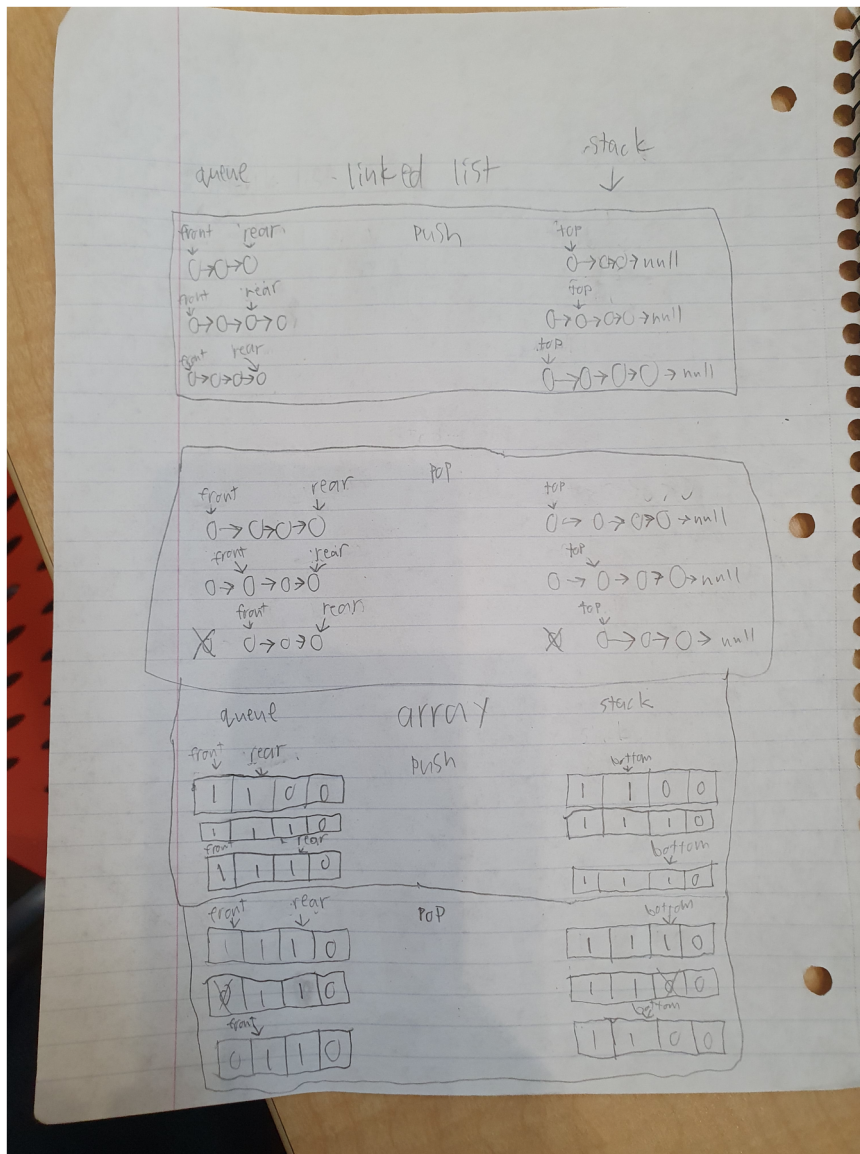 queue linked list stack
front rear push top
0→0→0 0→0→0→null
front rear top
0→0→0→0 0→0→0→0→null
front rear top
0→0→0→0 0→0→0→0→null
pop
front rear top
0→0→0→0 0→0→0→0→null
front rear top
0→0→0→0 0→0→0→0→null
front rear top
0→0→0 0→0→0→null
queue array stack
front rear push bottom
1 1 0 0 1 1 0 0
1 1 1 0 1 1 1 0
front rear bottom
1 1 1 0 1 1 1 0
front rear pop bottom
1 1 1 0 1 1 1 0
1 1 0 1 1 0
front bottom
0 1 1 0 1 1 0 0